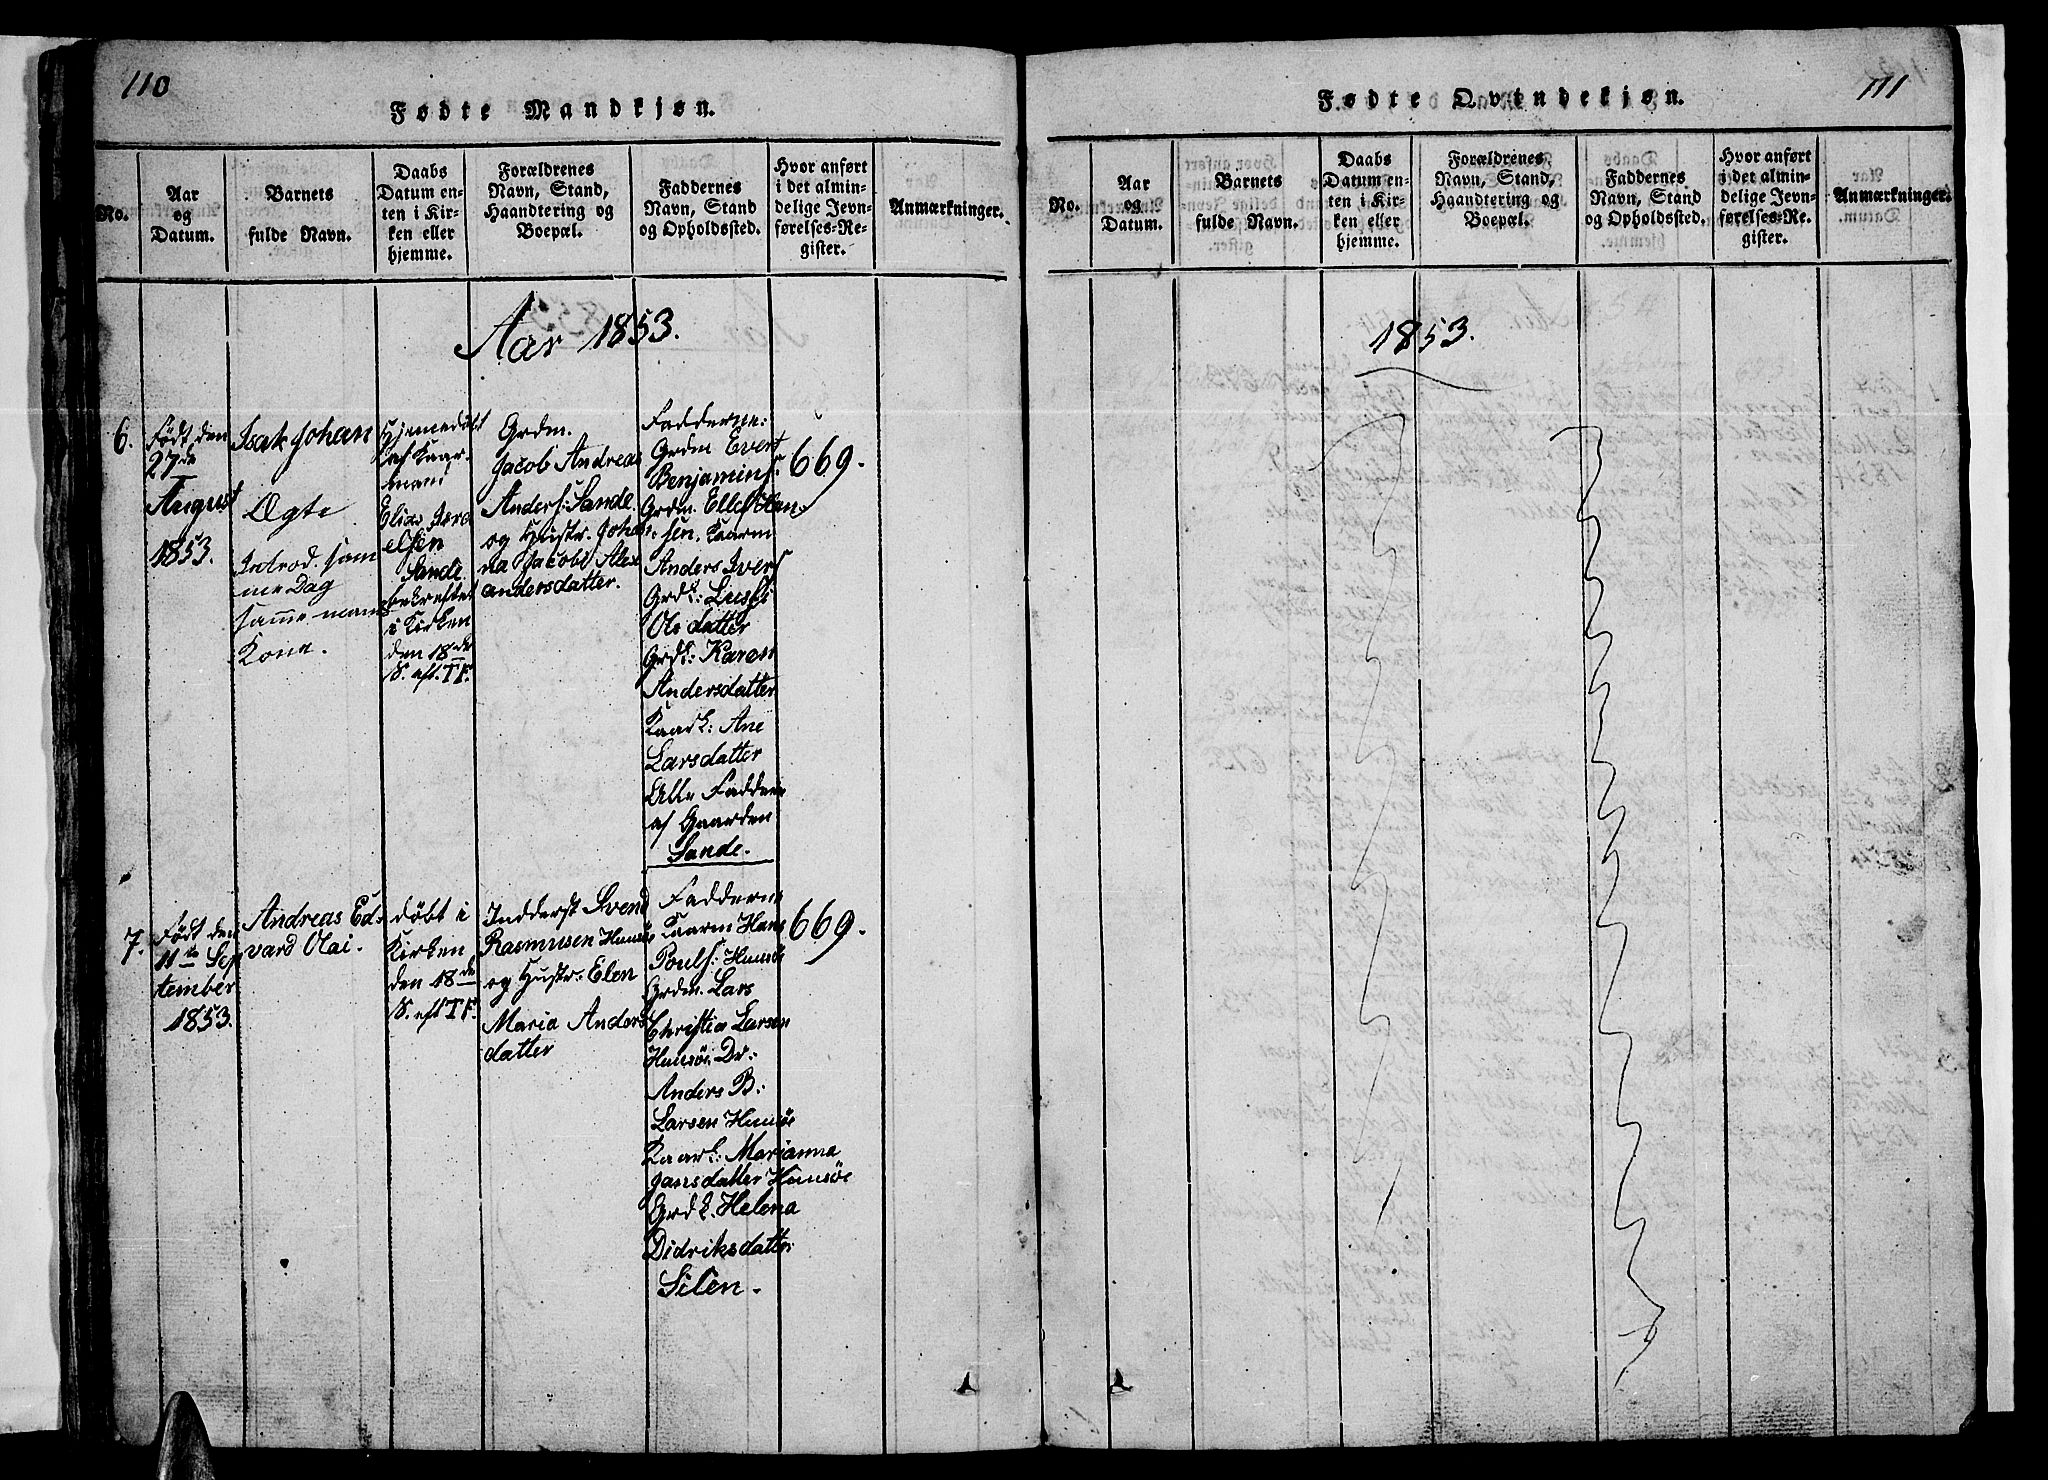 110
Fødte Mandkjøn.
No.
Aar
og
Datum.
Barnets
fulde Navn.
Daabs
Datum en-
ten i Kir-
ken eller
hjemme.
Forældrenes
Navn, Stand,
Haandtering og
Boepæl.
Faddernes
Navn, Stand
og Opholdssted.
Hvor anført
i det almin-
delige Jevn-
førelses-Re-
gister.
Anmærkninger.
Aar 1853.
6.
Født den
27de
August
1853.
Isak Johan
Ægte
Introd. sam
me Dag
samme mands
Kone.
Hjemedøbt
af Kaar-
mand
Elias Isra
elsen
Sande
bekreftet
i Kirken
den 18de
S. eft. TF.
Grdm.
Jacob Andreas
Anders: Sande
og Hustr. Johan-
na Jacobe Alex
andersdatter.
Fadderne:
Grdm Evert
Benjamins
Grdm. Elles Han-
sen, Kaarm
Anders Ivers
Grdk: Lussi
Ols datter
Grdk: Karen
Andersdatter
Kaark: Ane
Larsdatter
Alle Faddere
af Gaarden
Sande.
669.
7.
Født den
11te Sep
tember
1853.
Andreas Ed-
vard Olai.
døbt i
Kirken
den 18de
S. eft TF.
Indderst Svend
Rasmusen Husøe
og Hustr: Elen
Maria Anders
datter
Fadderne
Kaarm Hans
Pouls: Husøe
Grdm. Lars
Christia Larsen
Husøe Dr:
Anders B:
Larsen Husøe
Kaark: Marianna
Jansdatter Husøe
Grdk. Helena
Didriksdatter
Silen.
669.
111
Fødte Qvindekjøn.
No.
Aar
og
Datum.
Barnets
fulde Navn.
Daabs
Datum en-
ten i Kir-
ken eller
hjemme.
Forældrenes
Navn, Stand,
Haandtering og
Boepæl.
Faddernes
Navn, Stand
og Opholdssted.
Hvor anført
i det almin-
delige Jevn-
førelses-Re-
gister.
Anmærkninger.
1853.